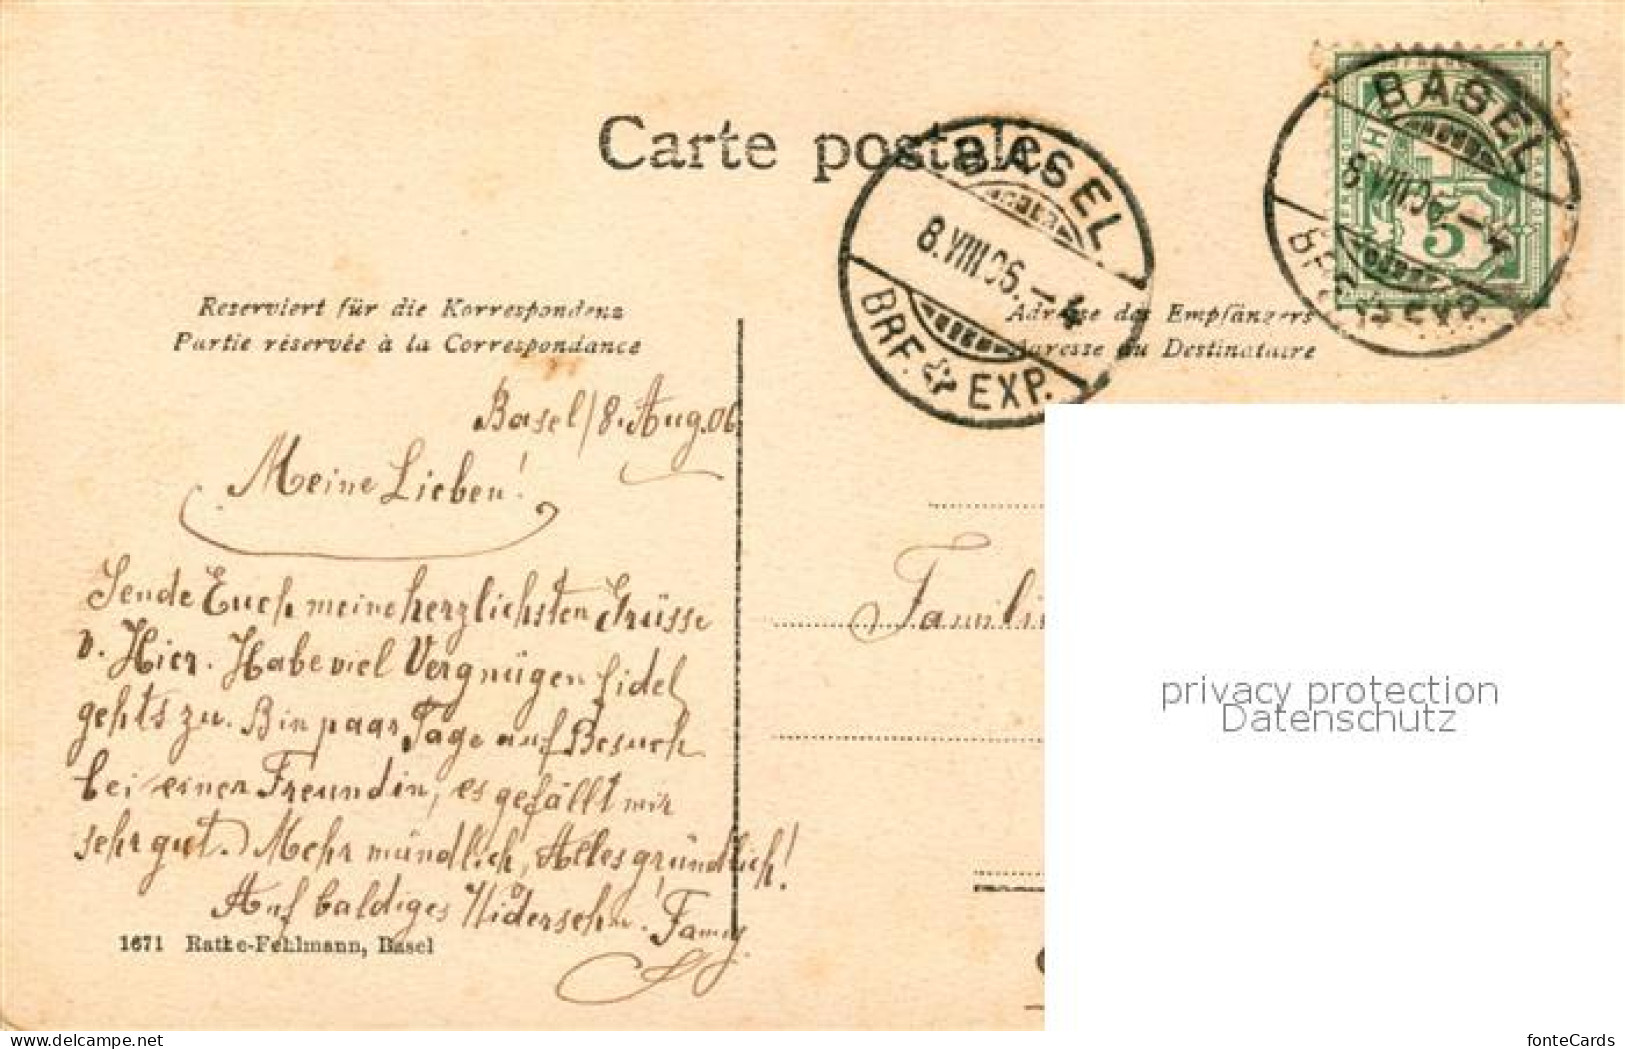 Carte postale
BASEL
8.VIII.06.–4
BRF. & EXP.
BASEL
8.VIII.06.–4
BRF. & EXP.
5
Reserviert für die Korrespondenz
Partie réservée à la Correspondance
Adresse des Empfängers
Adresse du Destinataire
Basel / 8. Aug. 06.
Meine Lieben!
Sende Euch meine herzlichsten Grüsse
v. Hier. Habe viel Vergnügen fidel
gehts zu. Bin paar Tage auf Besuch
bei einer Freundin, es gefällt mir
sehr gut. Mehr mündlich, Alles gründlich!
Auf baldiges Widersehn! Fanny.
Famili
1671 Ratke-Fehlmann, Basel
privacy protection
Datenschutz
www.delcampe.net
fonteCards